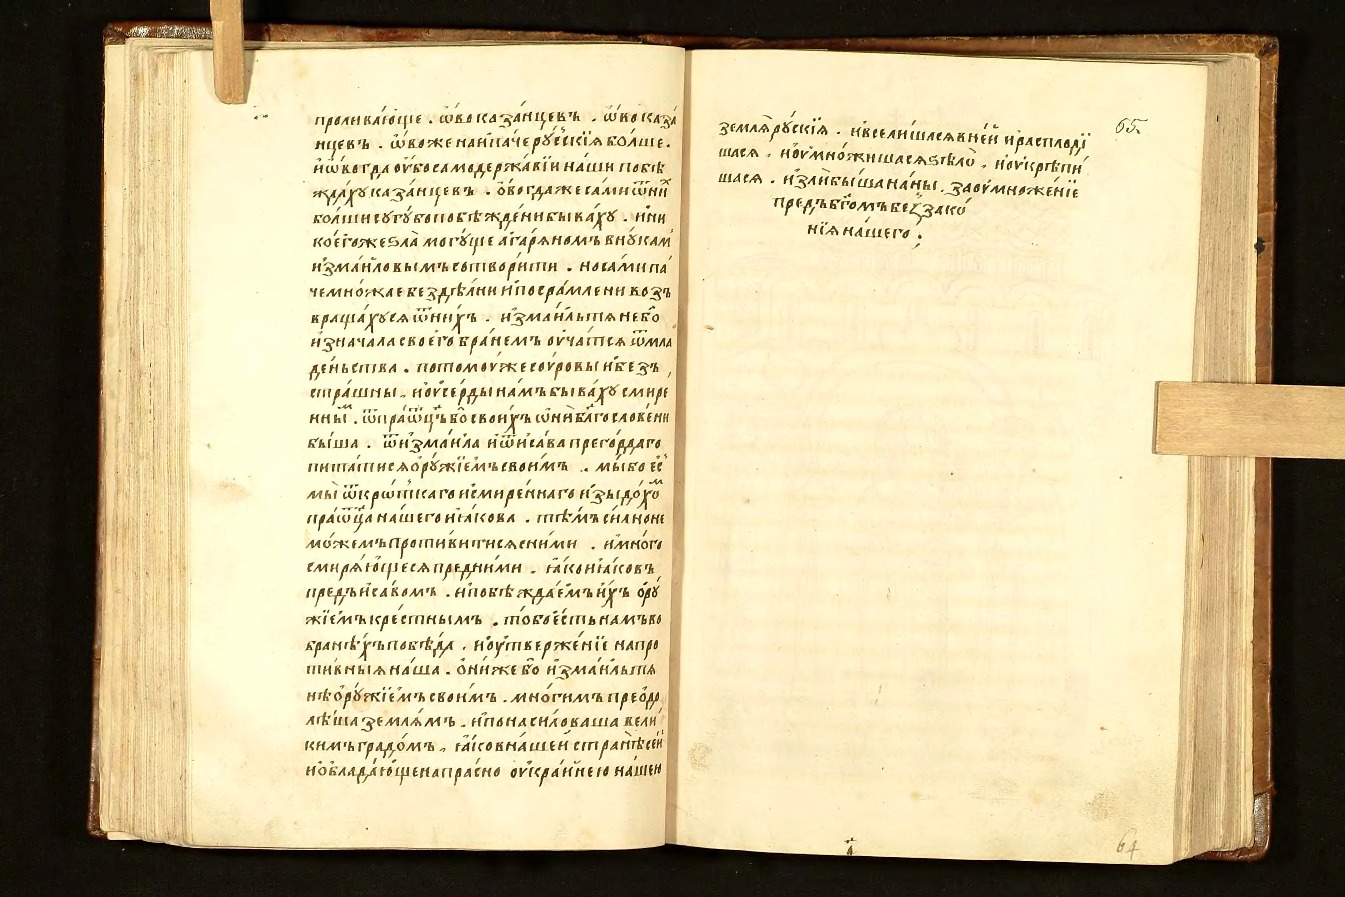 проливаю́ще . ѡ҆́во каза́нцевъ . ѡ҆́во каза́
нцевъ . ѡ҆́во же наипа́че рꙋ́сскїѧ бо́лше .
и҆ ѡ҆вогда ᲂу҆́бо самодержа́вїи на́ши побѣ
жда́хꙋ каза́нцевъ . ѻ҆вогда же са́ми ѿ ни́х
бо́лши сꙋгꙋ́бо побѣжде́ни быва́хꙋ . и҆ ни
кое́гоже ѕла̀ могꙋ́ще а҆гарѧ́номъ внꙋкам
и҆зма́иловымъ сотвори́ти . но са́ми па́
че мно́жае бездѣ́лни и҆ посра́млени возъ
враща́хꙋсѧ ѿ ни́хъ . и҆зма́ильтѧне бо
и҆знача́ла своего̀ бра́немъ ᲂу҆ча́тсѧ ѿ мла
де́ньства . потомꙋ́же сꙋ́ровы и҆ безъ
стра́шны . и҆ ᲂу҆се́рды на́мъ быва́хꙋ смире
нны́м . ѿ пра́ѿцъ бо свои́хъ ѡ҆нѝ благослове́ни
бы́ша . ѿ и҆зма́ила и҆ ѿ и҆са́ва прего́рдаго
пита́тисѧ ѻ҆рꙋ́жїемъ свои́мъ . мы́ бо е҆с
мы̀ ѿ кро́тъкаго и҆ смире́ннаго и҆зыдо́хом
пра́ѿца на́шего и҆а́кова . тѣ́мъ си́лно не
мо́жемъ проти́витисѧ с ни́ми . и҆ мно́го
смирѧ́ющесѧ пред ни́ми . ꙗ҆́ко и҆а́ковъ
предъ и҆са́вомъ . и҆ побѣжда́емъ и҆́хъ ѻ҆рꙋ́
жїемъ кре́стнымъ . то́ бо е҆́сть на́мъ во
бране́хъ побѣ́да . и҆ ᲂу҆тверже́нїе на про
ти́вныѧ на́ша . ѻ҆ни́ же бо и҆зма́ильтѧ
не ѻ҆рꙋ́жїемъ свои́мъ . мно́гимъ преодо
лѣ́ша землѧ́мъ . и҆ понаси́ловаша вели́
кимъ градо́мъ , ꙗ҆́ко в на́шей странѣ̀ се́й
и҆ ѻ҆блада́юще напра́сно ᲂу҆кра́йнею на́шею
65.
землѧ̀ рꙋ́скїѧ . и҆ всели́шасѧ в не́й и҆ расплоди́
шасѧ , и҆ ᲂу҆мно́жишасѧ ѕѣло̀ , и҆ ᲂу҆крѣпи́
шасѧ . и҆ злѝ бы́ша на́ны , за ᲂу҆множе́нїе
предъ бг҃омъ беззако́
нїѧ на́шего .
64